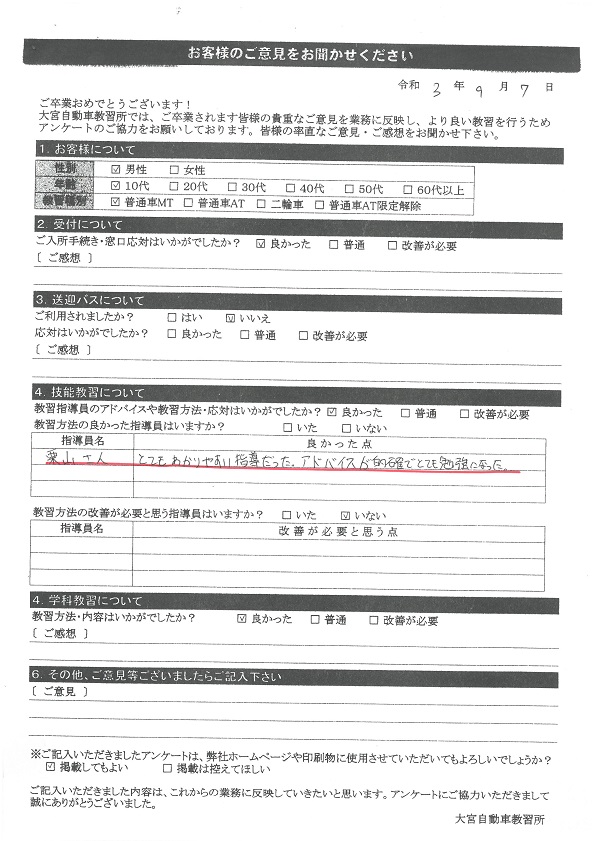 お客様のご意見をお聞かせください
令和 3 年 9 月 7 日
ご卒業おめでとうございます！
大宮自動車教習所では、ご卒業されます皆様の貴重なご意見を業務に反映し、より良い教習を行うため
アンケートのご協力をお願いしております。皆様の率直なご意見・ご感想をお聞かせ下さい。
1. お客様について
性別 ☑ 男性 □ 女性
年齢 ☑ 10代 □ 20代 □ 30代 □ 40代 □ 50代 □ 60代以上
教習種別 ☑ 普通車MT □ 普通車AT □ 二輪車 □ 普通車AT限定解除
2. 受付について
ご入所手続き・窓口応対はいかがでしたか？ ☑ 良かった □ 普通 □ 改善が必要
〔 ご感想 〕
3. 送迎バスについて
ご利用されましたか？ □ はい ☑ いいえ
応対はいかがでしたか？ □ 良かった □ 普通 □ 改善が必要
〔 ご感想 〕
4. 技能教習について
教習指導員のアドバイスや教習方法・応対はいかがでしたか？ ☑ 良かった □ 普通 □ 改善が必要
教習方法の良かった指導員はいますか？ □ いた □ いない
指導員名 良かった点
栗山さん とてもわかりやすい指導だった。アドバイスが的確でとても勉強になった。
教習方法の改善が必要と思う指導員はいますか？ □ いた ☑ いない
指導員名 改善が必要と思う点
4. 学科教習について
教習方法・内容はいかがでしたか？ ☑ 良かった □ 普通 □ 改善が必要
〔 ご感想 〕
6. その他、ご意見等ございましたらご記入下さい
〔 ご意見 〕
※ご記入いただきましたアンケートは、弊社ホームページや印刷物に使用させていただいてもよろしいでしょうか？
☑ 掲載してもよい □ 掲載は控えてほしい
ご記入いただきました内容は、これからの業務に反映していきたいと思います。アンケートにご協力いただきまして
誠にありがとうございました。
大宮自動車教習所